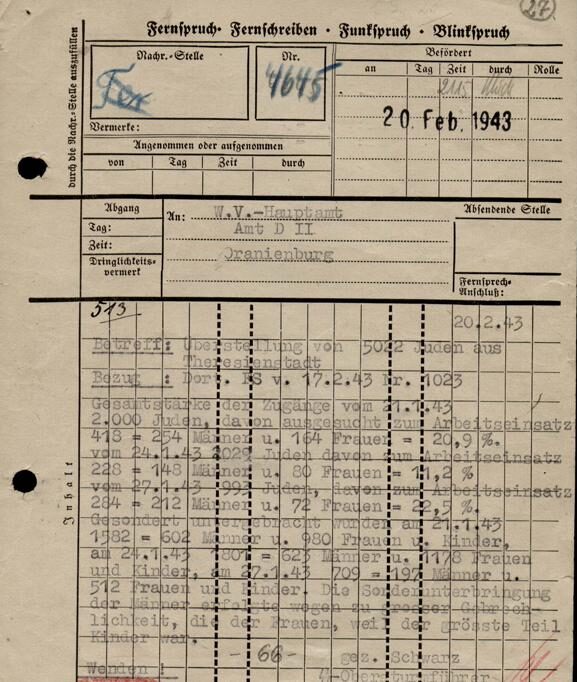 27
durch die Nachr.-Stelle auszufüllen
Fernspruch · Fernschreiben · Funkspruch · Blinkspruch
Nachr.-Stelle
Nr.
4645
Befördert
an Tag Zeit durch Rolle
2115
20. Feb. 1943
Vermerke:
Angenommen oder aufgenommen
von Tag Zeit durch
Abgang
Tag:
Zeit:
Dringlichkeits-
vermerk
An: W.V.-Hauptamt
Amt D II
Oranienburg
Absendende Stelle
Fernsprech-
Anschluß:
513
20.2.43
Betreff: Überstellung von 5022 Juden aus
Theresienstadt
Bezug : Dort. FS v. 17.2.43 Nr. 1023
Gesamtstärke der Zugänge vom 21.1.43
2.000 Juden, davon ausgesucht zum Arbeitseinsatz
418 = 254 Männer u. 164 Frauen = 20,9 %.
vom 24.1.43 2029 Juden davon zum Arbeitseinsatz
228 = 148 Männer u. 80 Frauen = 11,2 %
vom 27.1.43 993 Juden, davon zum Arbeitseinsatz
284 = 212 Männer u. 72 Frauen = 22,5 %.
Gesondert untergebracht wurden am 21.1.43
1582 = 602 Männer u. 980 Frauen u. Kinder,
am 24.1.43 1801 = 623 Männer u. 1178 Frauen
und Kinder, am 27.1.43 709 = 197 Männer u.
512 Frauen und Kinder. Die Sonderunterbringung
der Männer erfolgte wegen zu grosser Gebrech-
lichkeit, die der Frauen, weil der grösste Teil
Kinder war.
- 66 - gez. Schwarz
Wenden ! SS-Obersturmführer
Inhalt